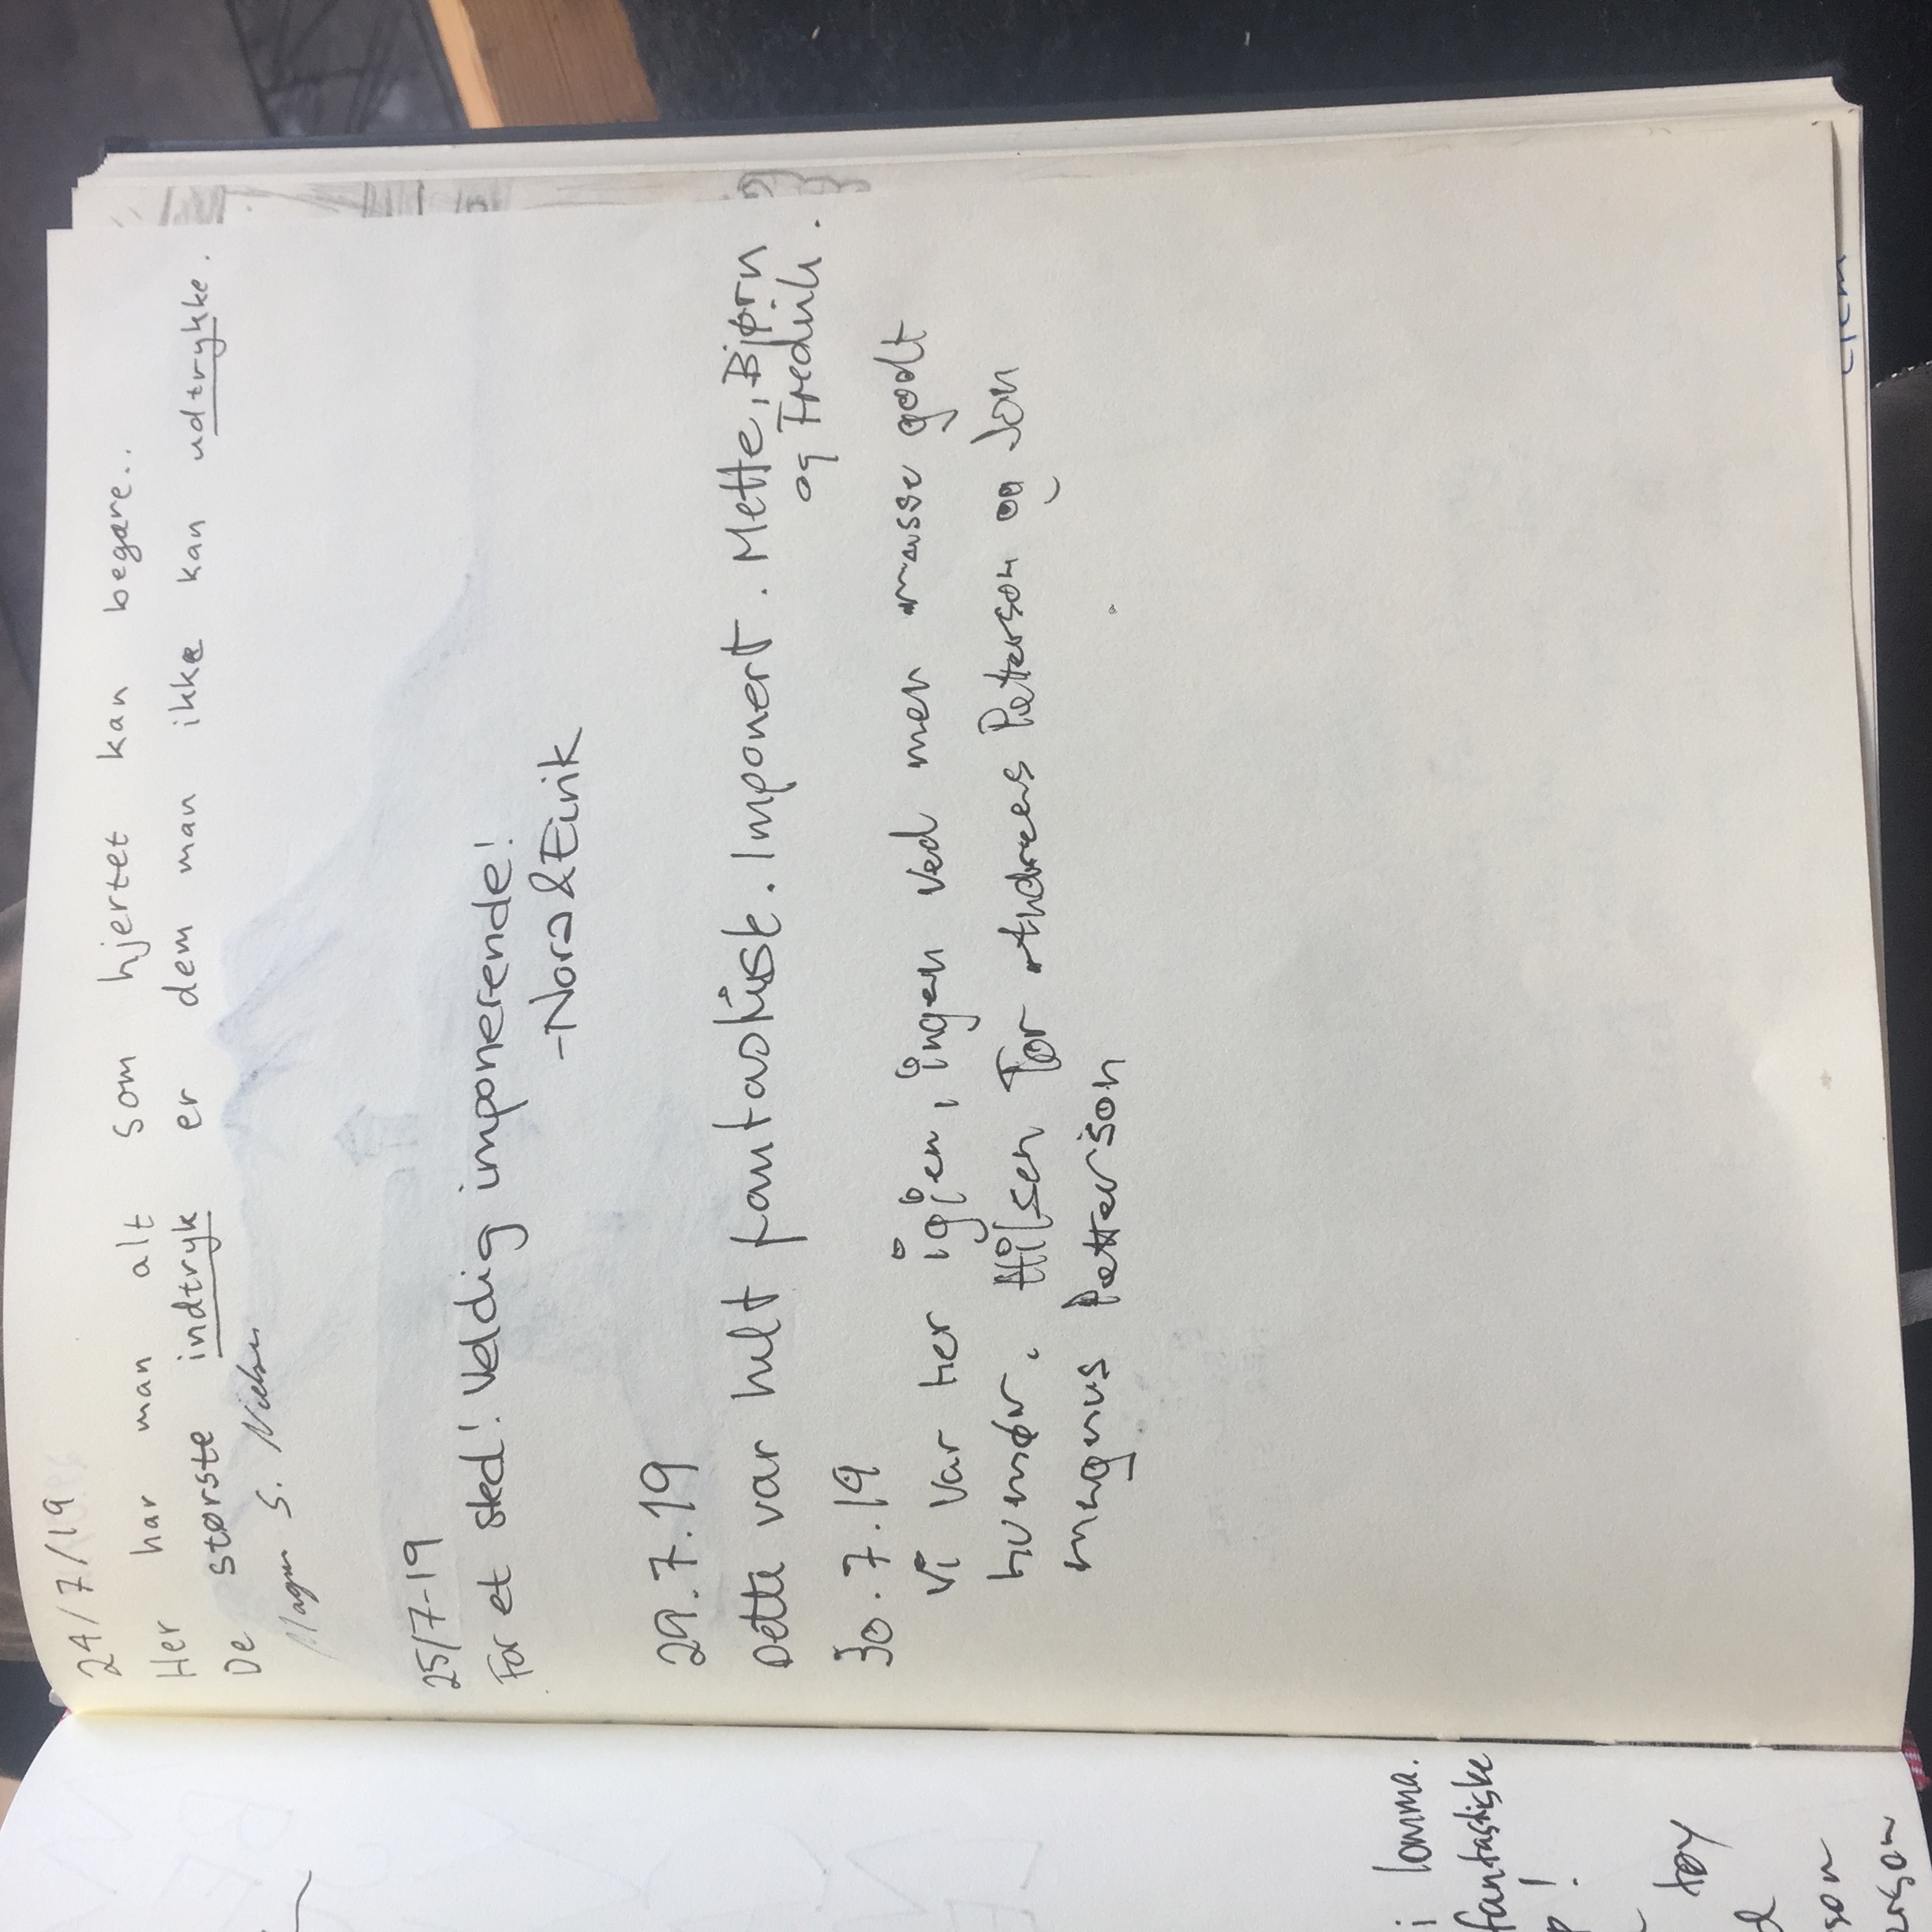 24/7/19
Her har man alt som hjertet kan begære..
De største indtryk er dem man ikke kan udtrykke.
Magnus S. Nielsen
25/7-19
For et sted! Veldig imponerende!
-Nora & Eirik
29.7.19
Dette var helt fantastisk. Imponert. Mette, Bjørn
og Fredrik.
30.7.19
Vi var her igjen, ingen ved men masse godt
humør. Hilsen Tor Andreas Petterson og Jon
magnus Petterson
i lomma.
fantastiske
!
tøy
son
erson